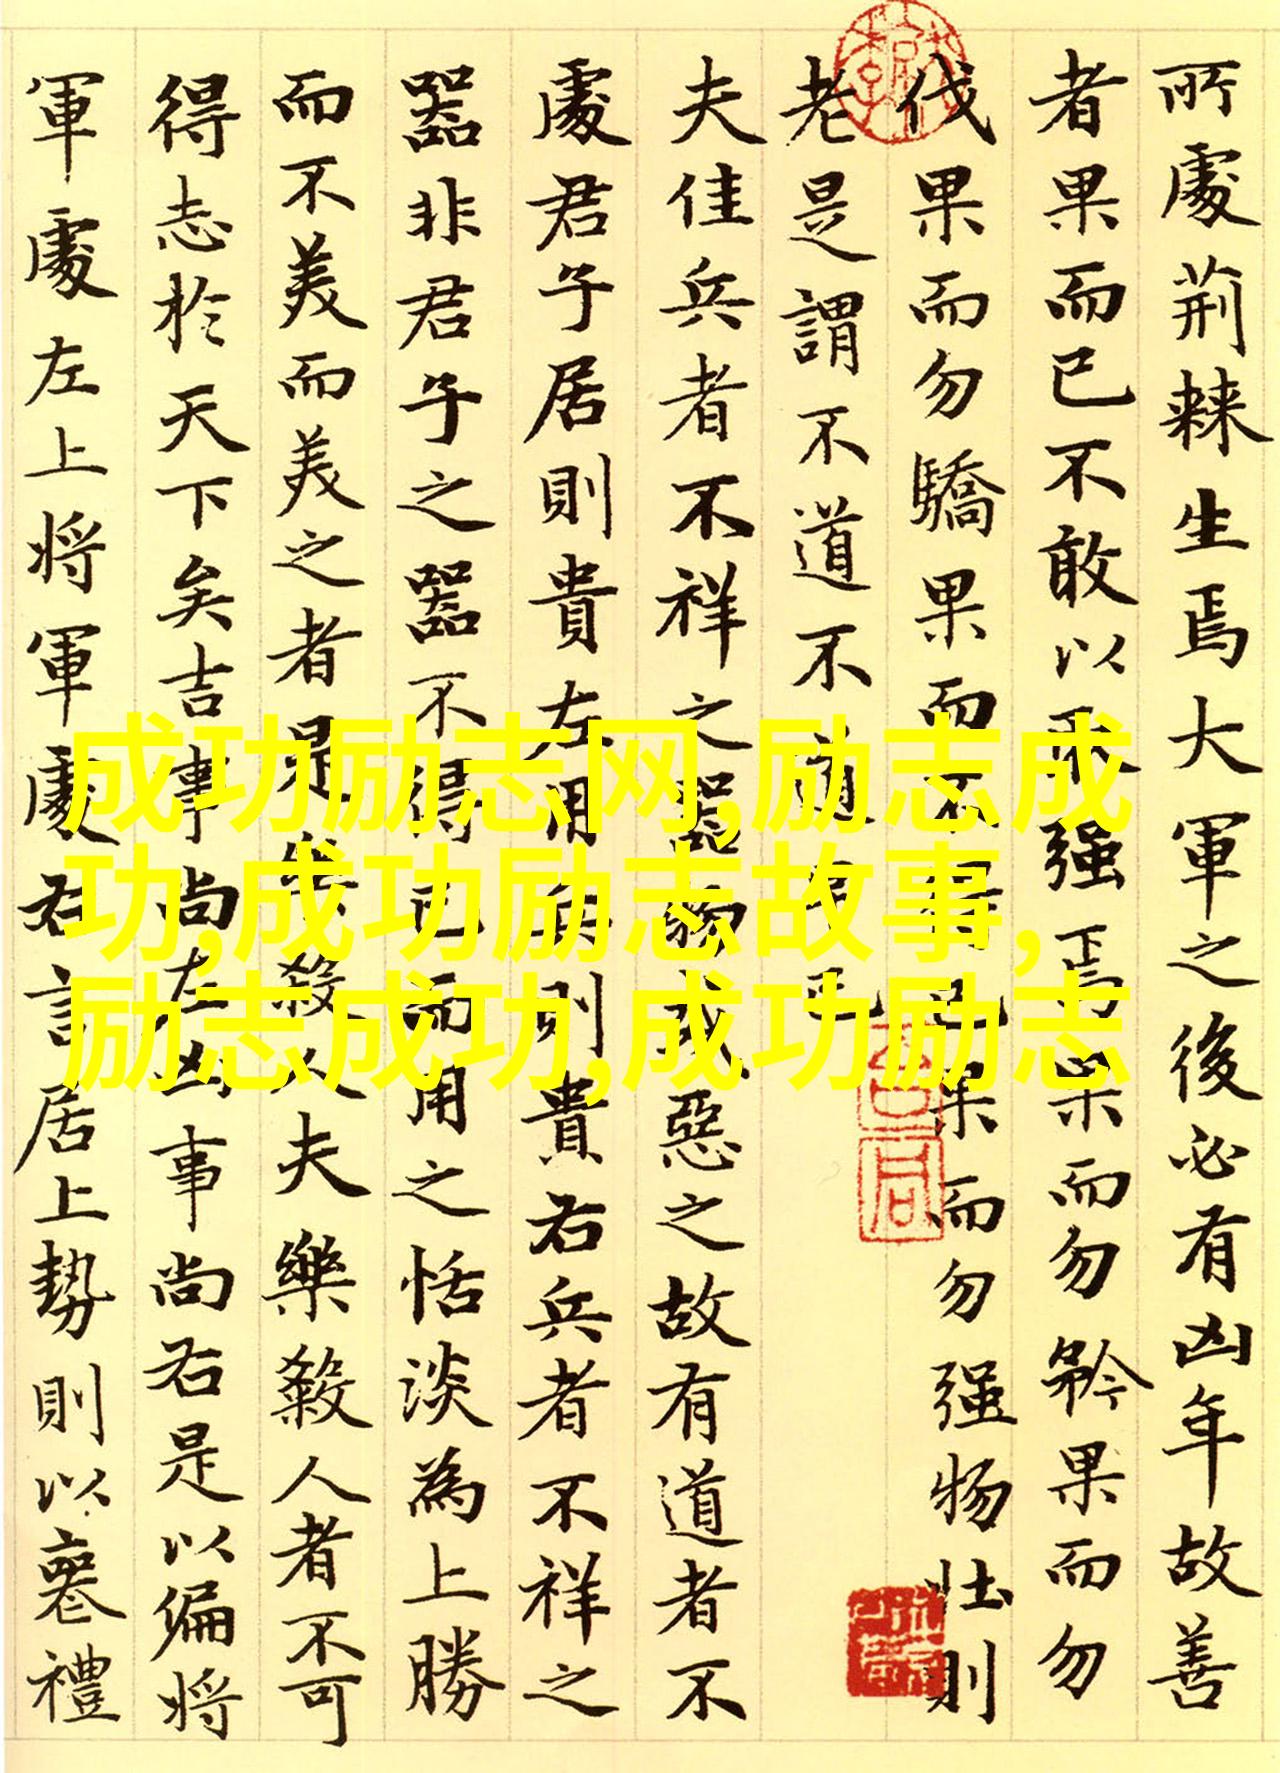 所處荊棘生焉大軍之後必有凶年故善
者果而已不敢以取强焉果而勿矜果而勿
伐果而勿驕果而不得已果而勿强物壯則
老是謂不道不道早已
夫佳兵者不祥之器物或惡之故有道者不
處君子居則貴左用兵則貴右兵者不祥之
器非君子之器不得已而用之恬淡為上勝
而不美而美之者是樂殺人夫樂殺人者不可
得志於天下矣吉事尚左凶事尚右是以偏将
軍處左上将軍處右言居上勢則以喪禮
成功励志网,励志成
功,成功励志故事,
励志成功,成功励志